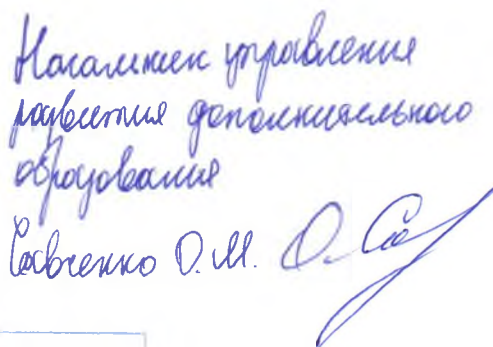 Начальник управления
развития дополнительного
образования
Савченко О.М.